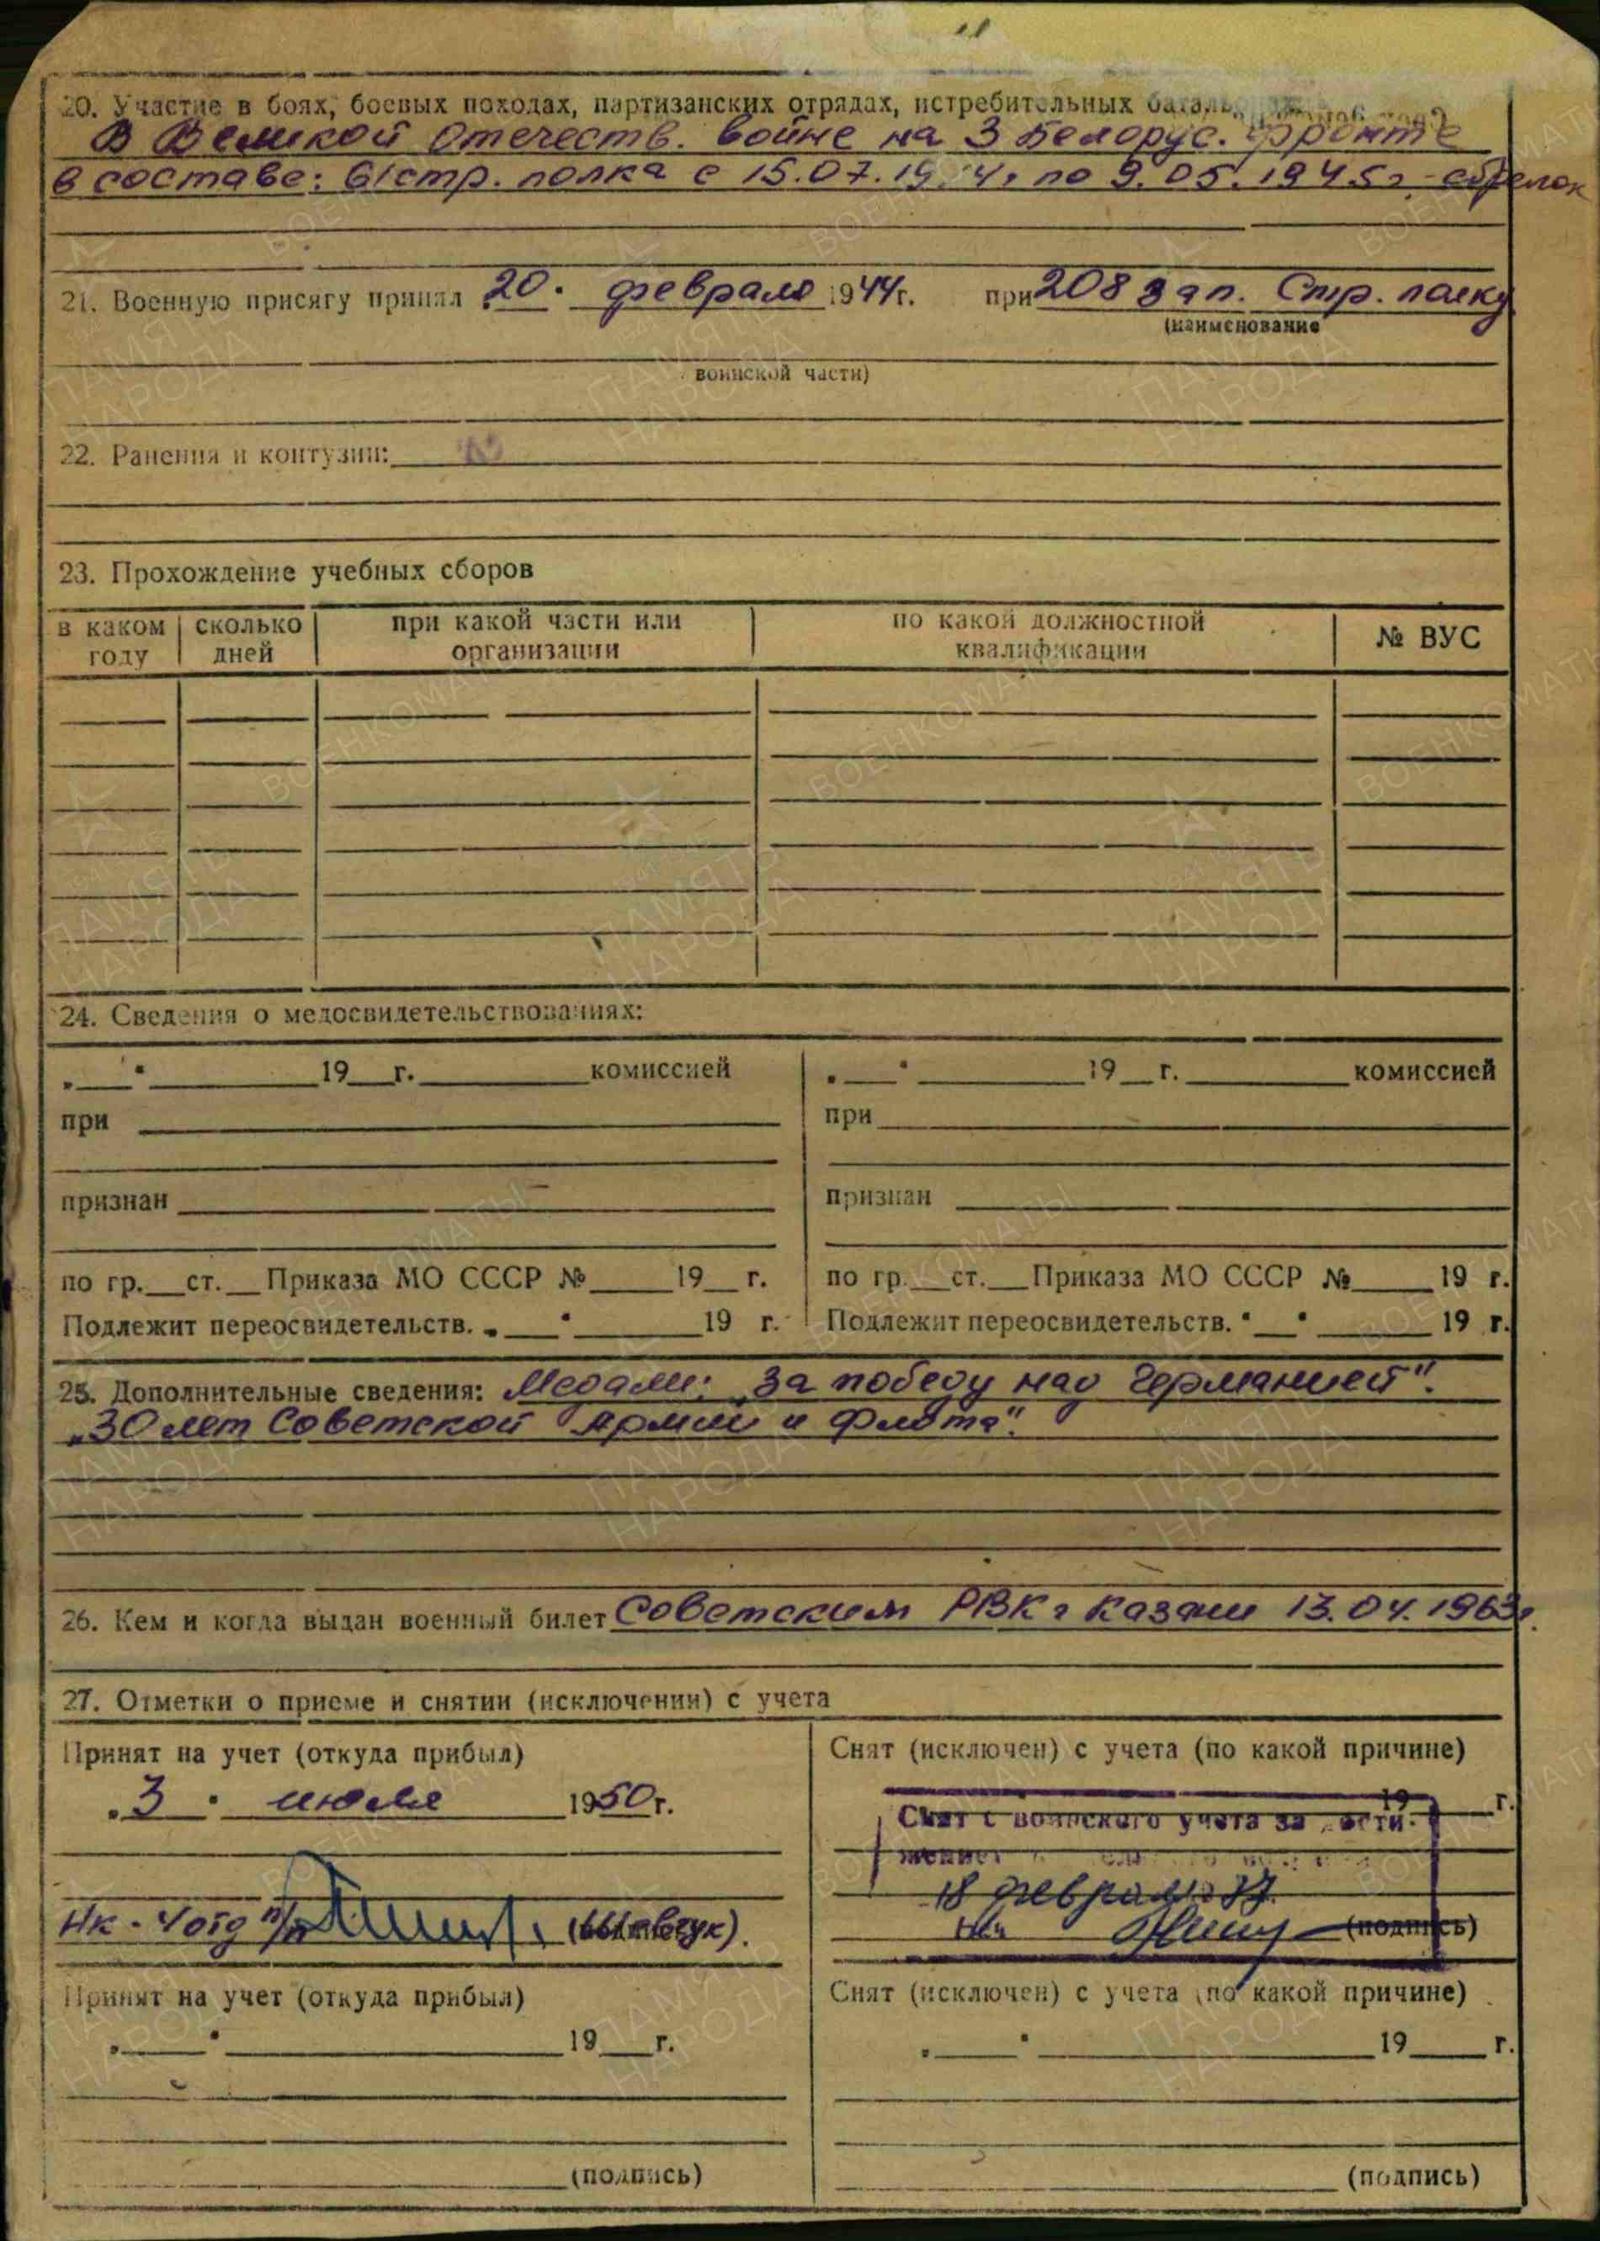 20. Участие в боях, боевых походах, партизанских отрядах, истребительных батальонах
В Великой Отечеств. войне на 3 Белорус. фронте
в составе: 61 стр. полка с 15.07.1944г по 9.05.1945г. - стрелок
21. Военную присягу принял 20 февраля 1944г. при 208 зап. Стр. полку
(наименование
воинской части)
22. Ранения и контузии:
23. Прохождение учебных сборов
в каком году сколько дней при какой части или организации по какой должностной квалификации № ВУС
24. Сведения о медосвидетельствованиях:
19 г. комиссией 19 г. комиссией
при при
признан признан
по гр. ст. Приказа МО СССР № 19 г. по гр. ст. Приказа МО СССР № 19 г.
Подлежит переосвидетельств. 19 г. Подлежит переосвидетельств. 19 г.
25. Дополнительные сведения: Медали: „За победу над Германией".
„30 лет Советской Армии и Флота".
26. Кем и когда выдан военный билет Советским РВК г Казани 13.04.1963г.
27. Отметки о приеме и снятии (исключении) с учета
Принят на учет (откуда прибыл) Снят (исключен) с учета (по какой причине)
3 июля 1950г. 19 г.
Снят с воинского учета за дости-
жением
18 февраля
Нк. 4 отд п/п (Шевчук). Нач (подпись)
Принят на учет (откуда прибыл) Снят (исключен) с учета (по какой причине)
19 г. 19 г.
(подпись) (подпись)
ПАМЯТЬ НАРОДА
ВОЕНКОМАТЫ